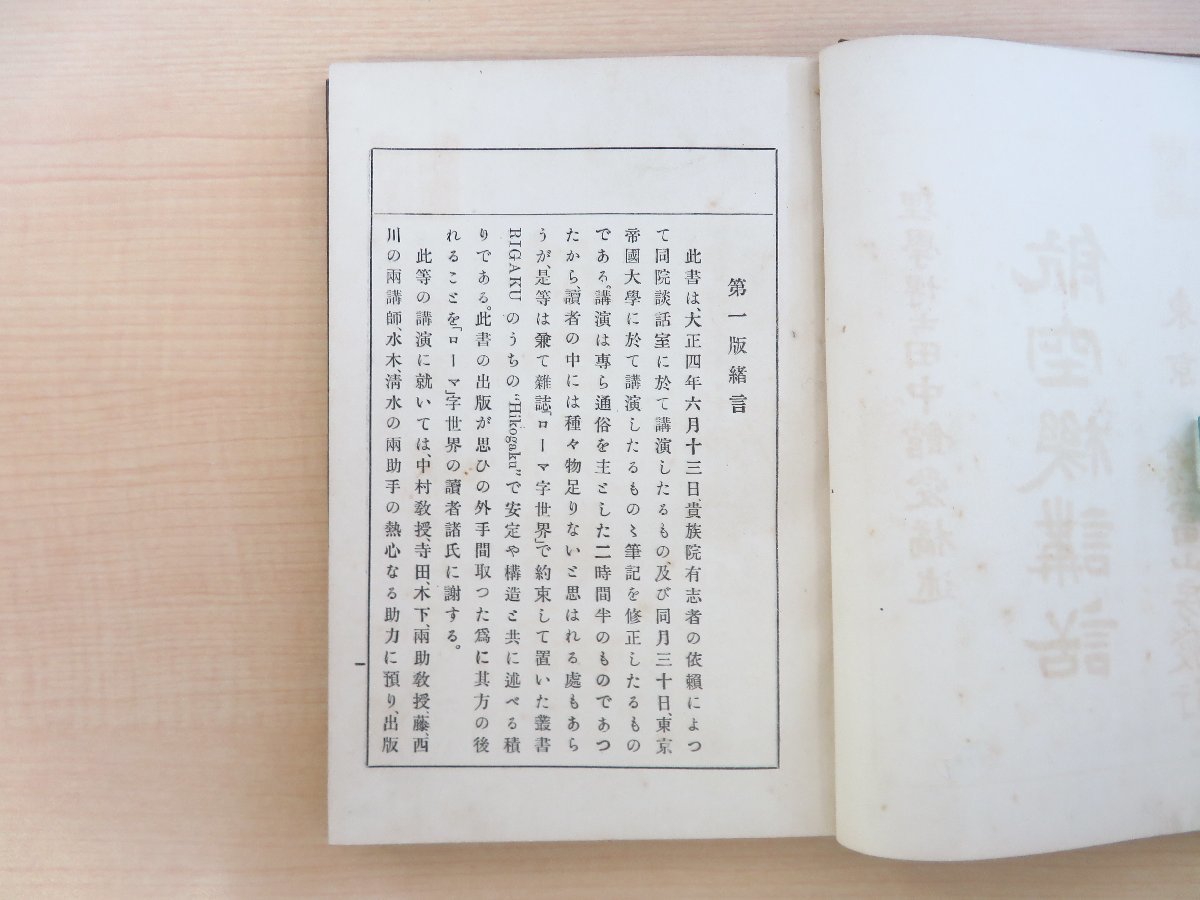 第一版緒言
此書は、大正四年六月十三日、貴族院有志者の依賴によつ
て同院談話室に於て講演したるもの、及び同月三十日、東京
帝國大學に於て講演したるものゝ筆記を修正したるもの
である。講演は專ら通俗を主とした二時間半のものであつ
たから、讀者の中には種々物足りないと思はれる處もあら
うが、是等は兼て雜誌「ローマ字世界」で約束して置いた叢書
RIGAKU のうちの "Hikōgaku" で安定や構造と共に述べる積
りである。此書の出版が思ひの外手間取つた爲に其方の後
れることを「ローマ」字世界の讀者諸氏に謝する。
此等の講演に就いては、中村敎授、寺田、木下、兩助敎授、藤、西
川の兩講師、水木、淸水の兩助手の熱心なる助力に預り、出版
一
航空機講話
理學博士田中館愛橘述
東京